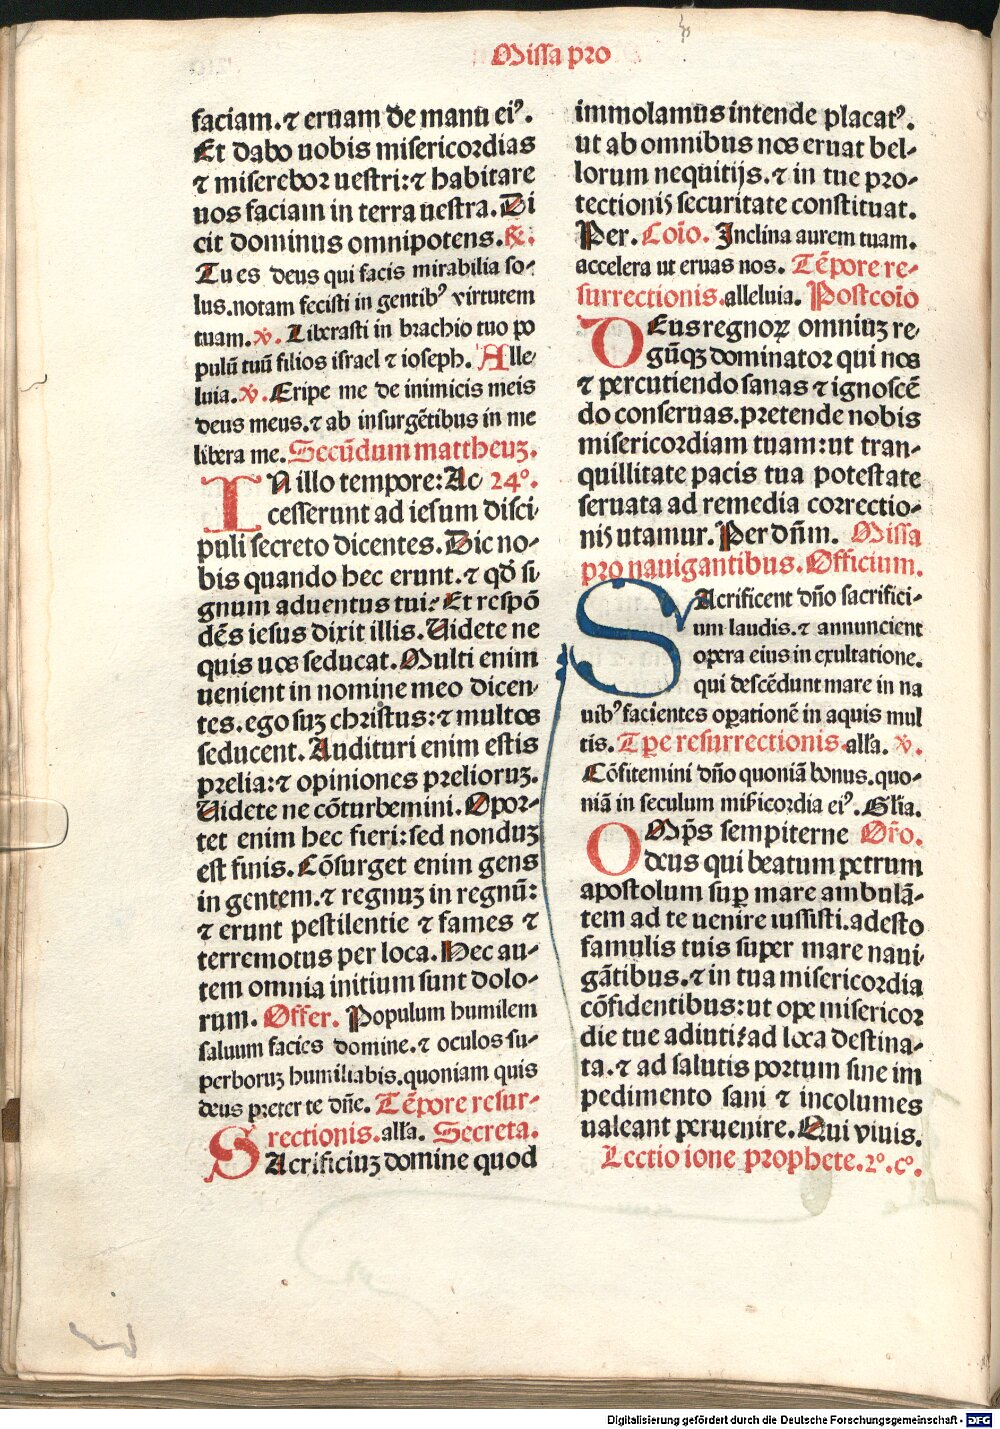 Missa pro
faciam.⁊ eruam de manu eiꝰ.
Et dabo uobis misericordias
⁊ miserebor uestri:⁊ habitare
uos faciam in terra uestra. Di
cit dominus omnipotens.
Tu es deus qui facis mirabilia so-
lus.notam fecisti in gentibꝰ virtutem
tuam. ℣. Liberasti in brachio tuo po
pulū tuū filios israel ⁊ ioseph. Alle-
luia. ℣. Eripe me de inimicis meis
deus meus.⁊ ab insurgētibus in me
libera me. Secūdum mattheuꝫ.
IN illo tempore: Ac 24°.
cesserunt ad iesum disci-
puli secreto dicentes. Dic no-
bis quando hec erunt.⁊ qđ si
gnum aduentus tui? Et respō
dēs iesus dixit illis. Uidete ne
quis uos seducat. Multi enim
uenient in nomine meo dicen-
tes.ego suꝫ christus:⁊ multos
seducent. Audituri enim estis
prelia:⁊ opiniones prelioruꝫ.
Uidete ne cōturbemini. Opor-
tet enim hec fieri: sed nonduꝫ
est finis. Cōsurget enim gens
in gentem.⁊ regnuꝫ in regnū:
⁊ erunt pestilentie ⁊ fames ⁊
terremotus per loca. Hec au-
tem omnia initium sunt dolo-
rum. Offer. Populum humilem
saluum facies domine.⁊ oculos su-
perboruꝫ humiliabis.quoniam quis
deus preter te dñe. Tēpore resur-
rectionis. alľa. Secreta.
SAcrificiuꝫ domine quod
immolamus intende placatꝰ.
ut ab omnibus nos eruat bel-
lorum nequitijs.⁊ in tue pro-
tectionis securitate constituat.
Per. Coīo. Inclina aurem tuam.
accelera ut eruas nos. Tēpore re-
surrectionis. alleluia. Postcoīo
DEus regnoꝝ omniuꝫ re-
gūqꝫ dominator qui nos
⁊ percutiendo sanas ⁊ ignoscē
do conseruas.pretende nobis
misericordiam tuam:ut tran-
quillitate pacis tua potestate
seruata ad remedia correctio-
nis utamur. Per dñm. Missa
pro nauigantibus. Officium.
SAcrificent dño sacrifici-
um laudis.⁊ annuncient
opera eius in exultatione.
qui descēdunt mare in na
uibꝰ facientes oꝑationē in aquis mul
tis. Tꝑe resurrectionis. alľa. ℣.
Cōfitemini dño quoniā bonus.quo-
niā in seculum mīsericordia eiꝰ. Gľia.
OMīps sempiterne Oīro.
deus qui beatum petrum
apostolum suꝑ mare ambulā-
tem ad te uenire iussisti.adesto
famulis tuis super mare naui-
gātibus.⁊ in tua misericordia
cōfidentibus:ut ope misericor
die tue adiuti: ad loca destina-
ta.⁊ ad salutis portum sine im
pedimento sani ⁊ incolumes
ualeant peruenire. Qui viuis.
Lectio ione prophete.2°.c°.
Digitalisierung gefördert durch die Deutsche Forschungsgemeinschaft - DFG